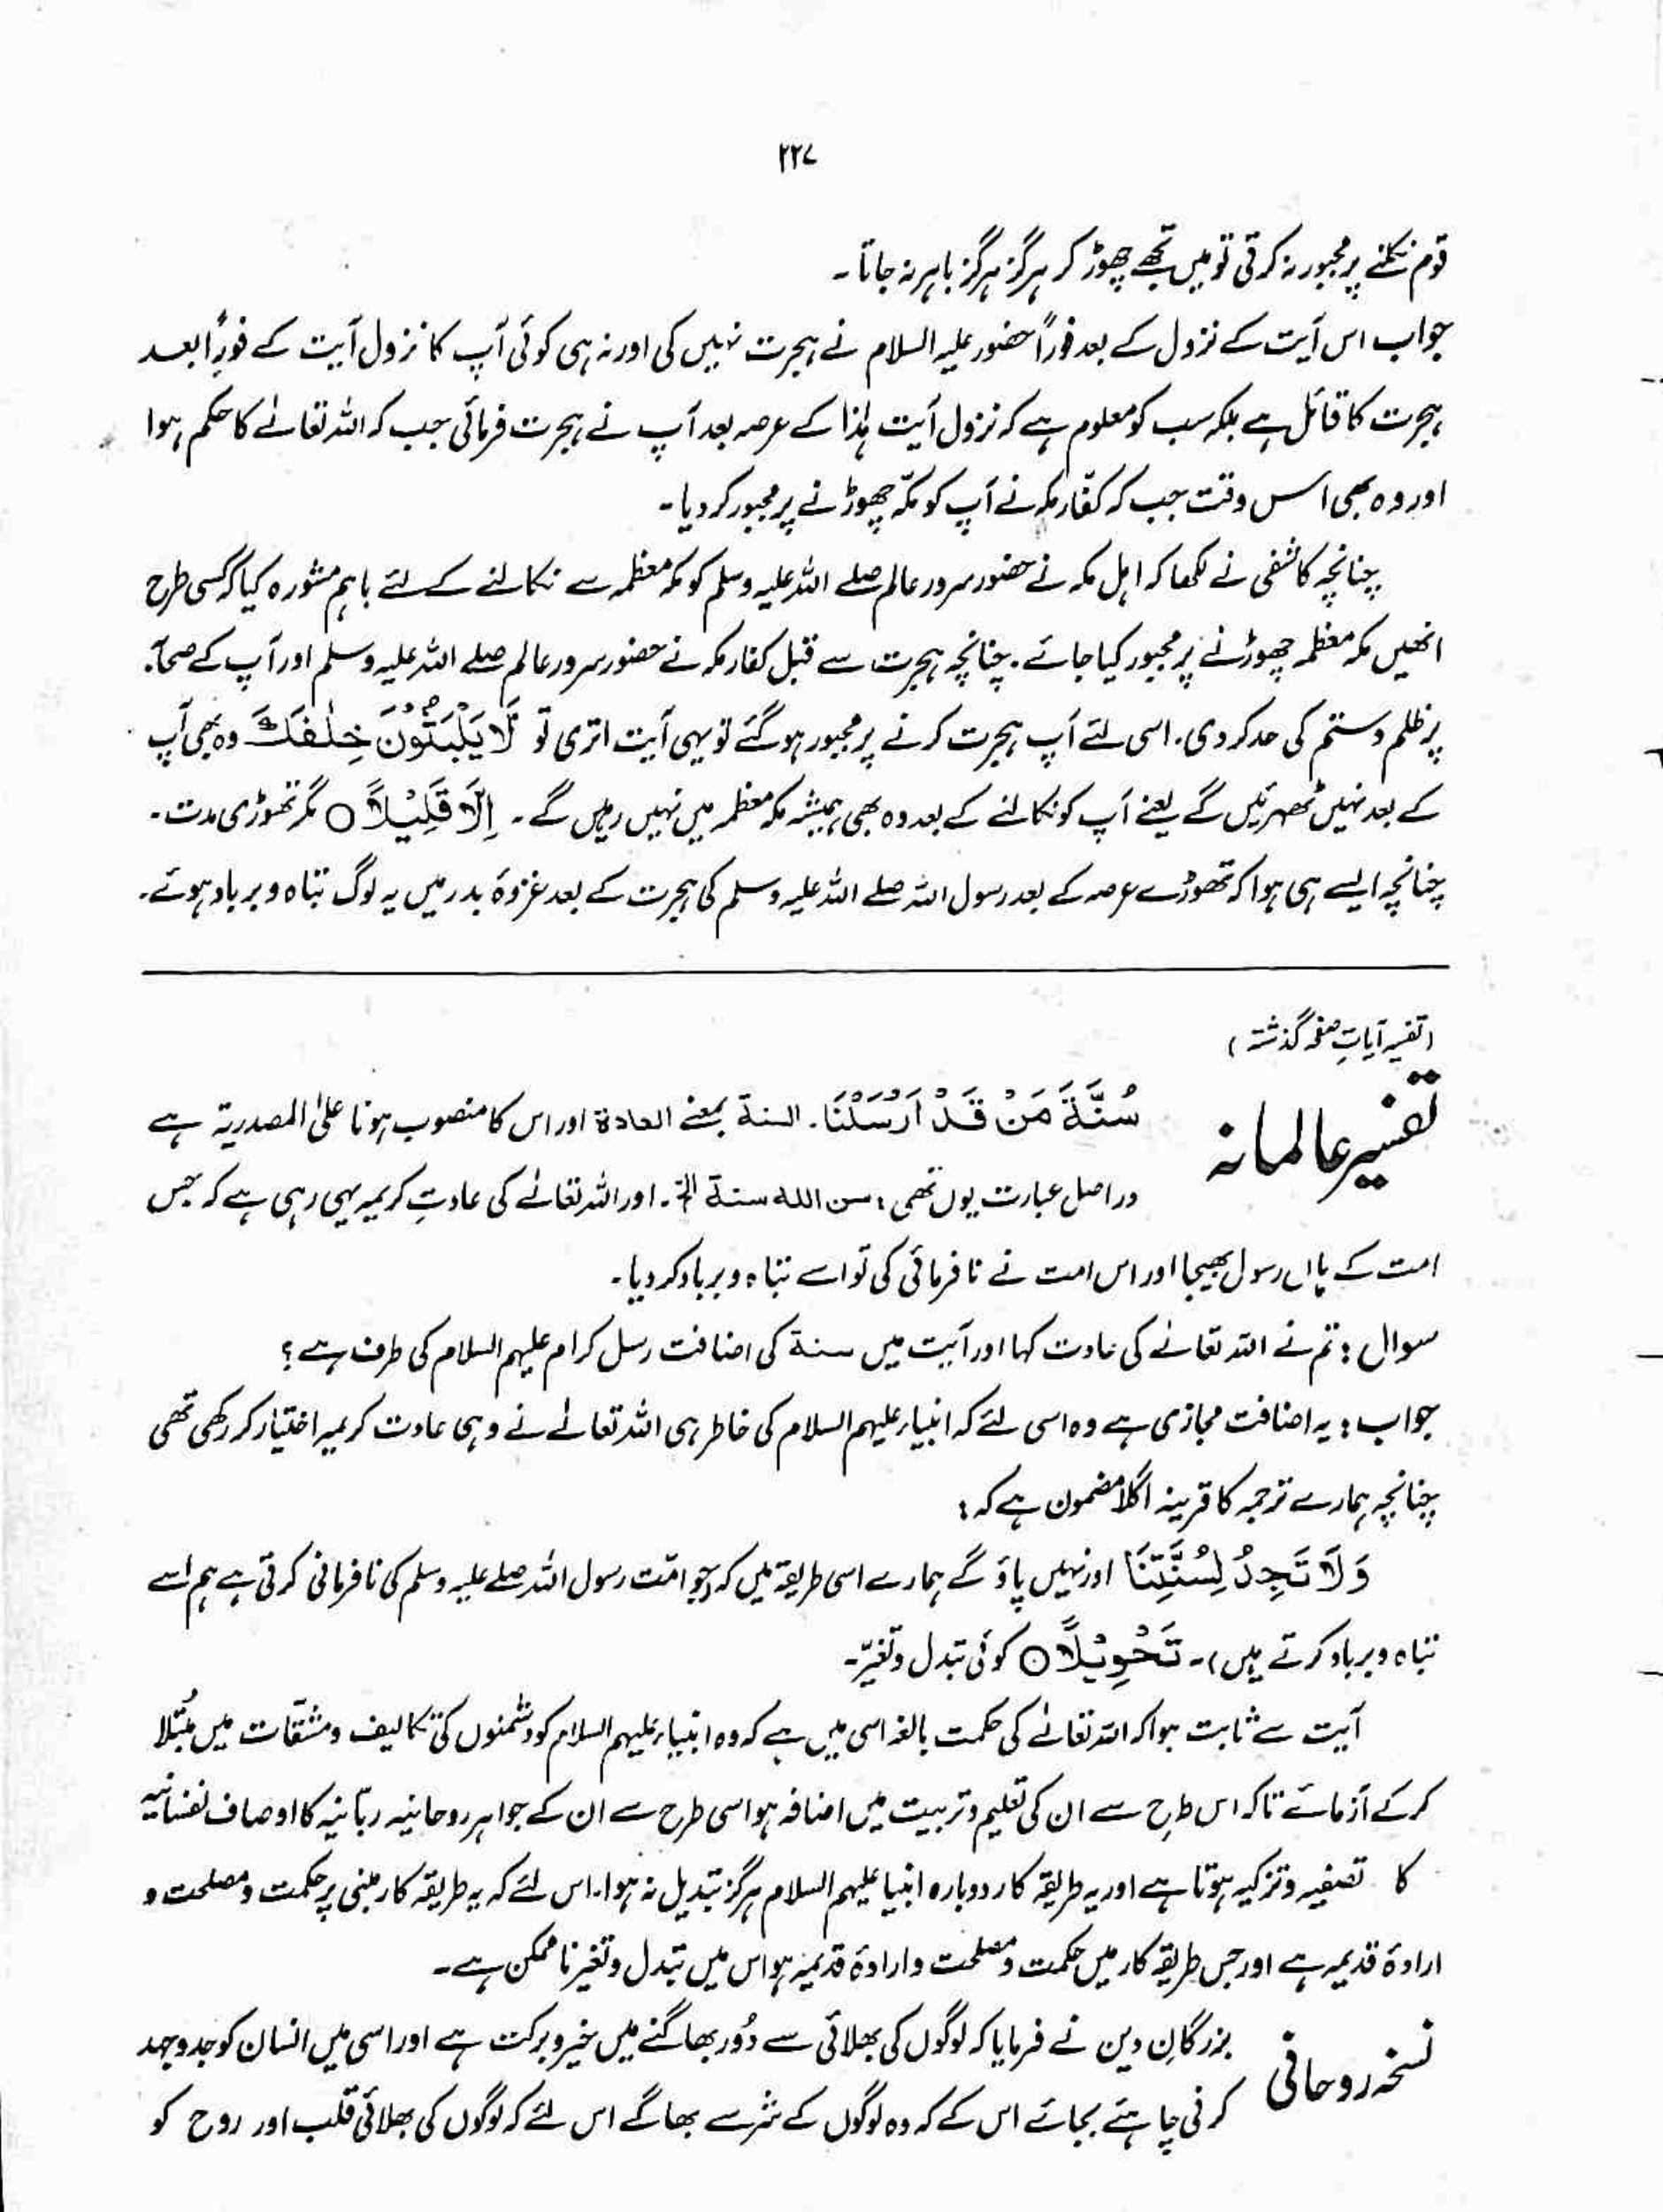 ۲۲۷
قوم نکلنے پر مجبور نہ کرتی تو میں تجھے چھوڑ کر ہرگز ہرگز باہر نہ جاتا۔
جواب اس آیت کے نزول کے بعد فوراً حضور علیہ السلام نے ہجرت نہیں کی اور نہ ہی کوئی آپ کا نزول آیت کے فوراً بعد
ہجرت کا قائل ہے بلکہ سب کو معلوم ہے کہ نزول آیت ہٰذا کے عرصہ بعد آپ نے ہجرت فرمائی جب کہ اللہ تعالےٰ کا حکم ہوا
اور وہ بھی اس وقت جب کہ کفّار مکہ نے آپ کو مکّہ چھوڑنے پر مجبور کر دیا۔
چنانچہ کاشفی نے لکھا کہ اہل مکہ نے حضور سرور عالم صلے اللہ علیہ وسلم کو مکہ معظمہ سے نکالنے کے لئے باہم مشورہ کیا کہ کسی طرح
انھیں مکہ معظمہ چھوڑنے پر مجبور کیا جائے۔ چنانچہ ہجرت سے قبل کفار مکہ نے حضور سرور عالم صلے اللہ علیہ وسلم اور آپ کے صحابہ
پر ظلم و ستم کی حد کر دی۔ اسی لئے آپ ہجرت کرنے پر مجبور ہو گئے تو یہی آیت اتری تو لَّا يَلْبَثُوْنَ خِلٰفَكَ وہ بھی آپ
کے بعد نہیں ٹھہریں گے یعنے آپ کو نکالنے کے بعد وہ بھی ہمیشہ مکہ معظمہ میں نہیں رہیں گے۔ اِلَّا قَلِيْلًا ○ مگر تھوڑی مدت۔
چنانچہ ایسے ہی ہوا کہ تھوڑے عرصہ کے بعد رسول اللہ صلے اللہ علیہ وسلم کی ہجرت کے بعد غزوۂ بدر میں یہ لوگ تباہ و برباد ہوئے۔
(تفسیر آیاتِ صفحہ گذشتہ)
تفسیر عالمانہ
سُنَّةَ مَنْ قَدْ اَرْسَلْنَا۔ السنة بمعنے العادة اور اس کا منصوب ہونا علیٰ المصدریۃ ہے
دراصل عبارت یوں تھی : سن الله سنة الخ۔ اور اللہ تعالےٰ کی عادتِ کریمہ یہی رہی ہے کہ جس
امت کے ہاں رسول بھیجا اور اس امت نے نافرمانی کی تو اسے تباہ و برباد کر دیا۔
سوال : تم نے اللہ تعالےٰ کی عادت کہا اور آیت میں سنة کی اضافت رسل کرام علیہم السلام کی طرف ہے؟
جواب : یہ اضافت مجازی ہے وہ اسی لئے کہ انبیاء علیہم السلام کی خاطر ہی اللہ تعالےٰ نے وہی عادت کریمہ اختیار کر رکھی تھی
چنانچہ ہمارے ترجمہ کا قرینہ اگلا مضمون ہے کہ :
وَلَا تَجِدُ لِسُنَّتِنَا اور نہیں پاؤ گے ہمارے اسی طریقہ میں کہ (جو امّت رسول اللہ صلے علیہ وسلم کی نافرمانی کرتی ہے ہم اسے
تباہ و برباد کرتے ہیں)۔ تَحْوِيْلًا ○ کوئی تبدل و تغیّر۔
آیت سے ثابت ہوا کہ اللہ تعالےٰ کی حکمت بالغہ اسی میں ہے کہ وہ انبیاء علیہم السلام کو دشمنوں کی تکالیف و مشقات میں مُبتلا
کر کے آزمائے تاکہ اس طرح سے ان کی تعلیم و تربیت میں اضافہ ہو اسی طرح سے ان کے جواہر روحانیہ ربّانیہ کا اوصاف نفسانیہ
کا تصفیہ و تزکیہ ہوتا ہے اور یہ طریقہ کار دوبارہ انبیا علیہم السلام ہرگز تبدیل نہ ہوا۔ اس لئے کہ یہ طریقہ کار مبنی بر حکمت و مصلحت و
ارادۂ قدیمہ ہے اور جس طریقہ کار میں حکمت و مصلحت و ارادۂ قدیمہ ہو اس میں تبدل و تغیر ناممکن ہے۔
نسخہ روحانی
بزرگانِ دین نے فرمایا کہ لوگوں کی بھلائی سے دُور بھاگنے میں خیر و برکت ہے اور اسی میں انسان کو جدوجہد
کرنی چاہئے بجائے اس کے کہ وہ لوگوں کے شر سے بھاگے اس لئے کہ لوگوں کی بھلائی قلب اور روح کو